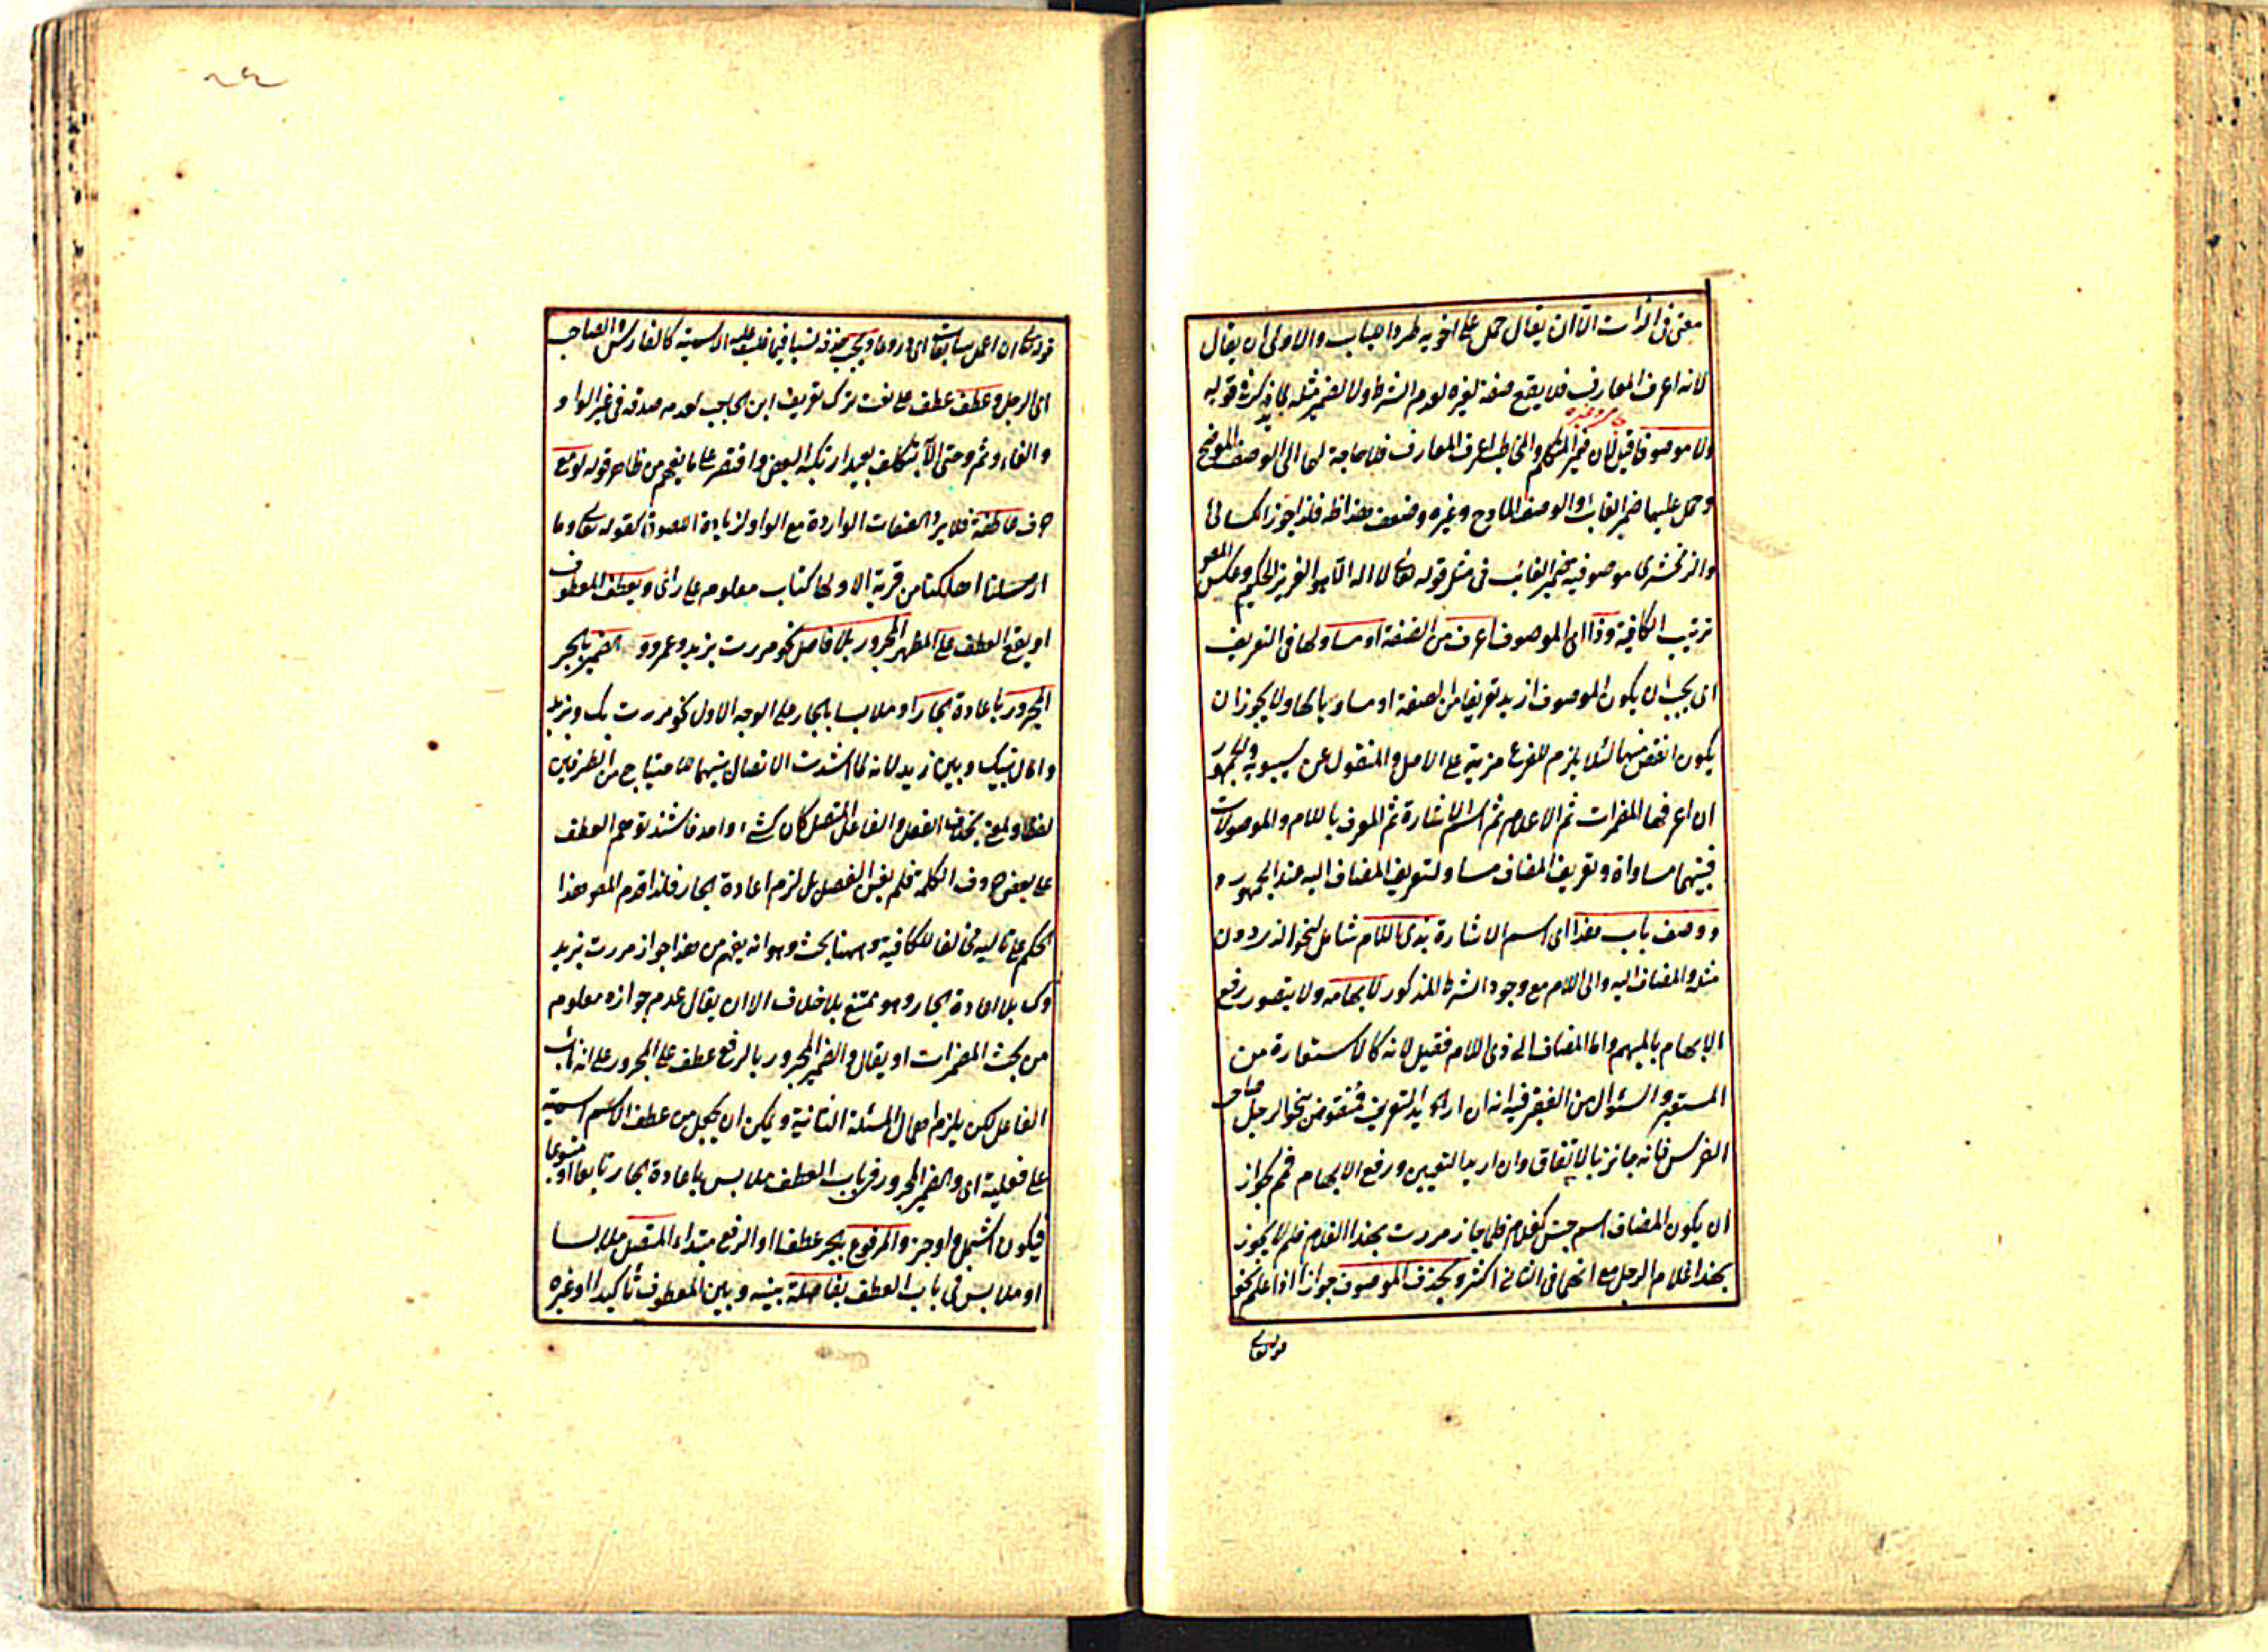 معنى فى الذات الا ان يقال حمل على اخويه طردا للباب والاولى ان يقال
لانه اعرف المعارف فلا يقع صفة لغيره لعدم الشرط ولا لضمير مثله لما يذكر فى قوله
ولا موصوفا قيل لان ضمير المتكلم والمخاطب اعرف المعارف فلا حاجة لها الى الوصف الموضح
وحمل عليهما ضمير الغائب والوصف المادح وغيره وضعف هذا ظ فلذا جوز الكسائى
والزمخشرى موصوفية ضمير الغائب فى مثل قوله تعالى لا اله الا هو العزيز الحكيم وعكس المص
ترتيب الكافية وذا اى الموصوف اعرف من الصفة او مساو لها فى التعريف
اى يجب ان يكون الموصوف ازيد تعريفا من الصفة او مساويا لها ولا يجوز ان
يكون انقص منها لئلا يلزم للفرع مزية على الاصل والمنقول عن سيبويه والجمهور
ان اعرفها المضمرات ثم الاعلام ثم اسم الاشارة ثم المعرف باللام والموصولات
فبينهما مساواة وتعريف المضاف مساو لتعريف المضاف اليه عند الجمهور و
ووصف باب هذا اى اسم الاشارة بذى اللام شامل لنحو الذى دون
مثله والمضاف اليه والى اللام مع وجود الشرط المذكور لابهامه ولا يتصور رفع
الابهام بالمبهم واما المضاف الى ذى اللام فقيل لانه كالاستعارة من
المستعير والسئوال من الفقير فيه انه ان اريد التعريف فمنقوض بنحو الرجل صاحب
الفرس فانه جائز بالاتفاق وان اريد التعيين ورفع الابهام فمم لجواز
ان يكون المضاف اسم جنس كغلام فلما جاز مررت بهذا الغلام فلم لا يجوز
بهذا غلام الرجل مع انهما فى الثانى اكثر ويحذف الموصوف جوازا اذا علم نحو
قوله تعالى
قوله تعالى ان اعمل سابغات اى دروعا ويجب حذفه نسيا فيما غلب عليه الاسمية كالفارس والصاحب
اى الرجل وعطف عطف على نعت ترك تعريف ابن الحاجب لعدم صدقه فى غير الواو
والفاء وثم وحتى الا بتكلف بعيد ارتكبه البعض واقتصر على ما يفهم من ظاهر قوله تابع مع
حرف عاطفة فلا يرد الصفات الواردة مع الواو لزيادة اللصوق كقوله تعالى وما
ارسلنا اهلكنا من قرية الا ولها كتاب معلوم على رأى ويعطف المعطوف
او يقع العطف على المظهر المجرور بلا فاصل نحو مررت بزيد وعمرو و الضمير بالجر
المجرور باعادة الجار او ملابسا بالجار على الوجه الاول نحو مررت بك وبزيد
والمال بينك وبين زيد لانه لما اشتدت الاتصال بينهما للاحتياج من الطرفين
لفظا ومعنى بخلاف الفعل والفاعل المتصل كان كشئ واحد فاشتد توهم العطف
على بعض حروف الكلمة فلم يغن الفصل بل لزم اعادة الجار فلذا قدم المص هذا
الحكم على تاليه مخالفا للكافية وههنا بحث وهو انه يفهم من هذا جواز مررت بزيد
وك بلا اعادة الجار وهو ممتنع بلا خلاف الا ان يقال عدم جوازه معلوم
من بحث المضمرات او يقال والضمير المجرور بالرفع عطف على المجرور على انه نائب
الفاعل لكن يلزم اهمال المسئلة الثانية ويمكن ان يجعل من عطف الاسم اسمية
على فعلية اى والضمير المجرور فى باب العطف ملابس باعادة الجار تابعا او متبوعا
فيكون اشمل واوجز والمرفوع بجر عطفا او الرفع مبتداء المتصل ملابسا
او ملابس فى باب العطف بفاصلة بينه وبين المعطوف تأكيدا او غيره